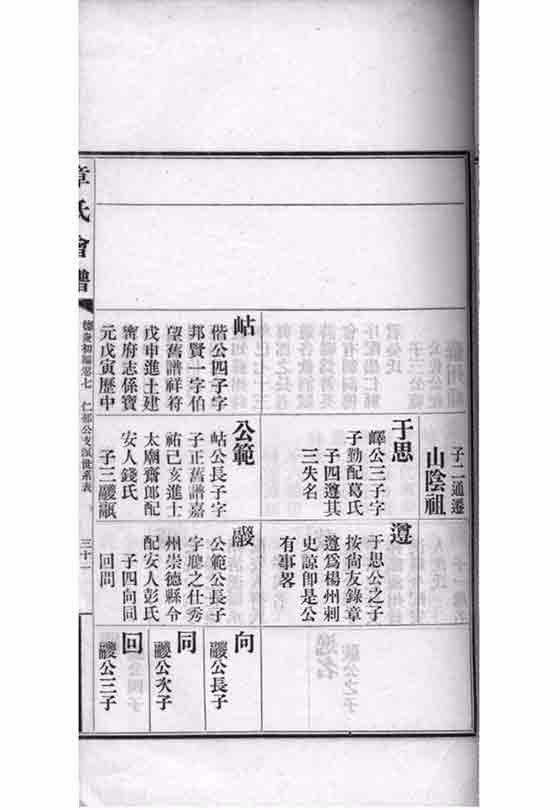 岵
偕公四子字
邦賢一字伯
望舊譜祥符
戊申進士建
寧府志係寶
元戊寅歷中
子二通遷
山陰祖
于思
嶧公三子字
子勤配葛氏
子四遵其
三失名
公範
岵公長子字
子正舊譜嘉
祐己亥進士
太廟齋郎配
安人錢氏
子三
遵
于思公之子
按尙友錄章
遵爲楊州刺
史諒卽是公
有事畧
公範公長子
之仕秀
州崇德縣令
配安人彭氏
子四向同
回問
向
公長子
同
公次子
回
公三子
章氏會譜
德慶初編卷七
仁郁公支派世系表
三十二